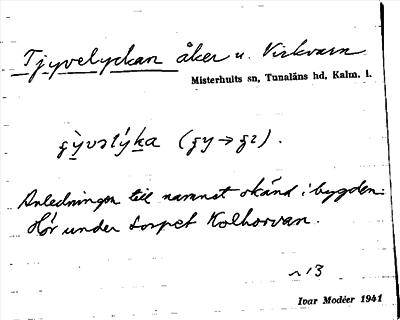 Tjyvelyckan åker u. Virkvarn
Misterhults sn, Tunaläns hd, Kalm. l.
Anledningen till namnet okänd i bygden.
Hör under torpet Kolhorvan.
~13
Ivar Modéer 1941